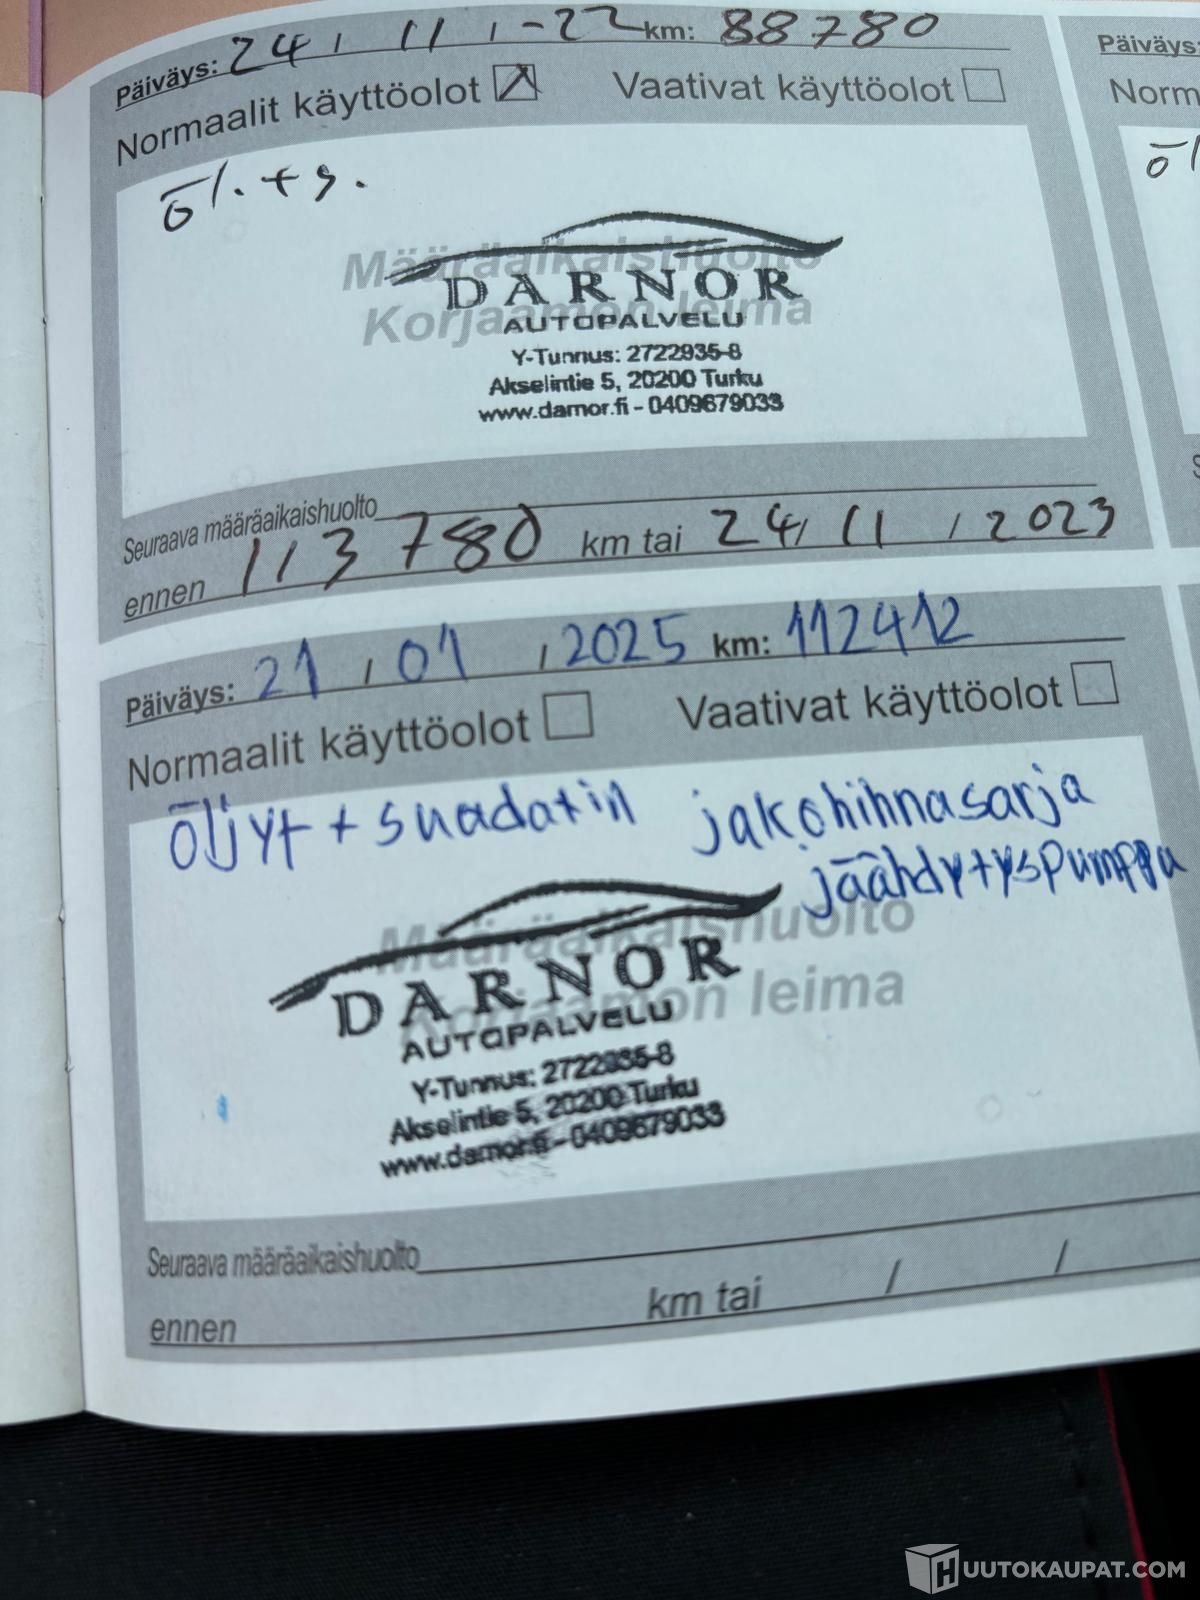 Päiväys: 24 / 11 / -22 km: 88780
Normaalit käyttöolot Vaativat käyttöolot
öl. + s.
Määräaikaishuolto
Korjaamon leima
DARNOR
AUTOPALVELU
Y-Tunnus: 2722935-8
Akselintie 5, 20200 Turku
www.darnor.fi - 0409679033
Seuraava määräaikaishuolto
ennen 113780 km tai 24 / 11 / 2023
Päiväys: 21 / 01 / 2025 km: 112412
Normaalit käyttöolot Vaativat käyttöolot
öljyt + suadatin jakohihnasarja
jäähdytyspumppa
Määräaikaishuolto
Korjaamon leima
DARNOR
AUTOPALVELU
Y-Tunnus: 2722935-8
Akselintie 5, 20200 Turku
www.darnor.fi - 0409679033
Seuraava määräaikaishuolto
ennen km tai / /
Päiväys:
Norm
öl
HUUTOKAUPAT.COM